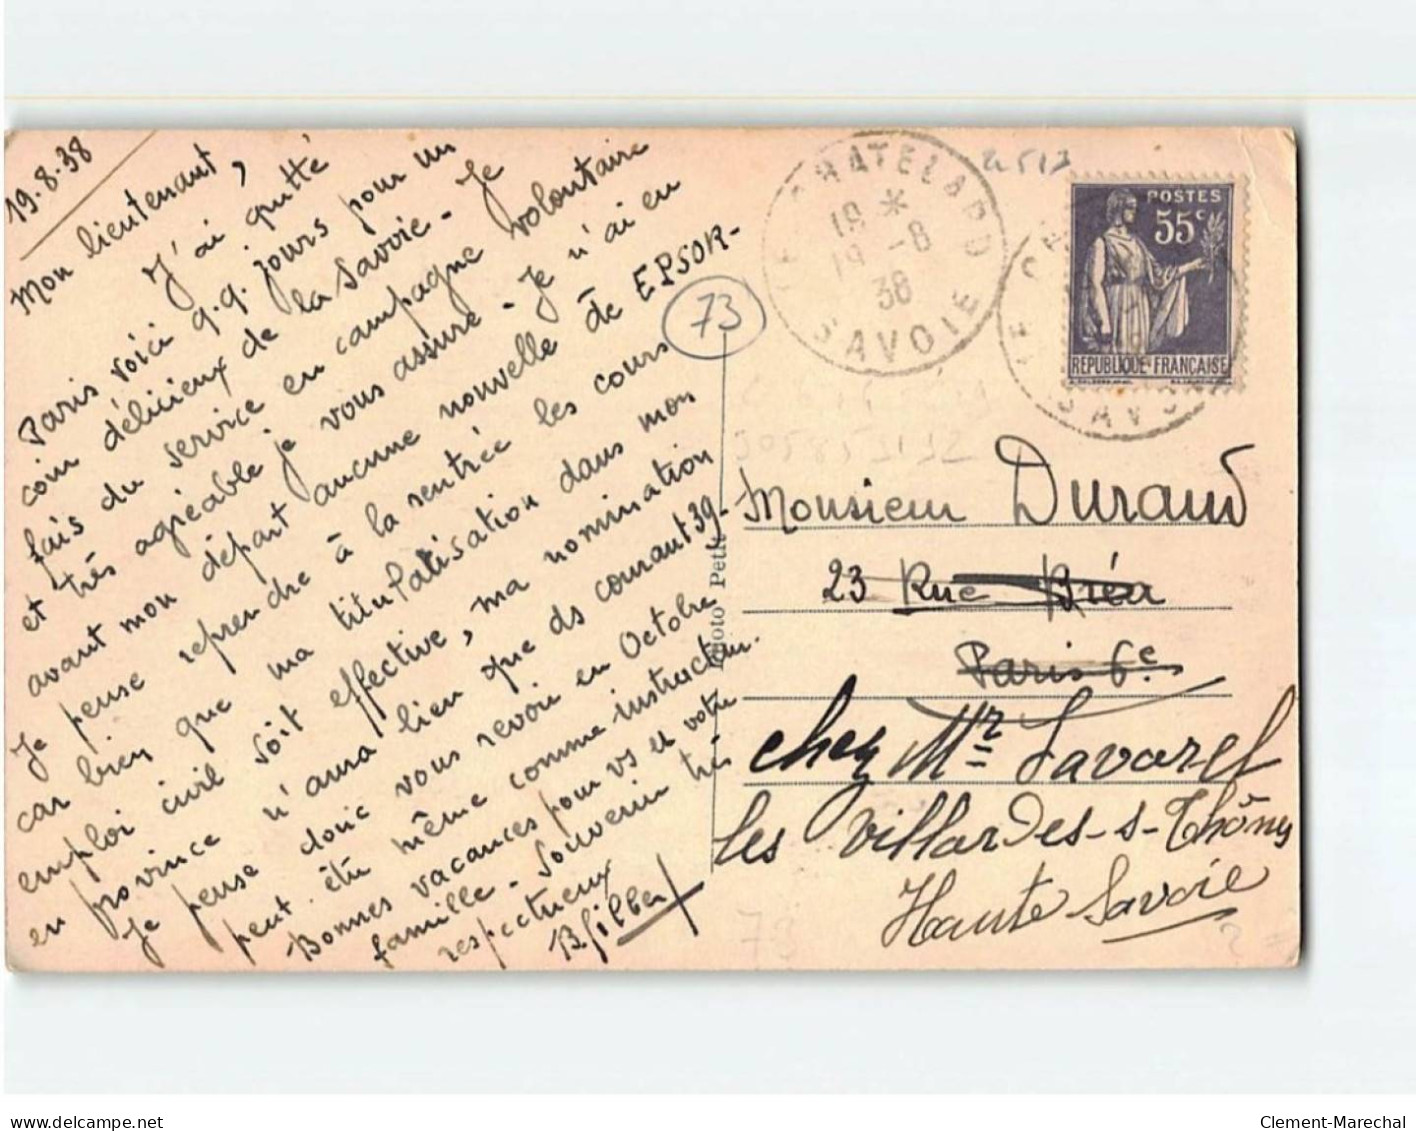 19.8.38
Mon lieutenant,
J'ai quitté
Paris voici q.q. jours pour un
coin délicieux de la Savoie - Je
fais du service en campagne volontaire
et très agréable je vous assure - Je n'ai eu
avant mon départ aucune nouvelle de EPSOR-
Je pense reprendre à la rentrée les cours
car bien que ma titularisation dans mon
emploi civil soit effective, ma nomination
en province n'aura lieu que ds courant 39-
Je pense donc vous revoir en Octobre
peut être même comme instructeur.
Bonnes vacances pour vs et votre
famille - Souvenir très
respectueux
BGilbert
73
LE CHATELARD
18 *
19 -8
38
SAVOIE
POSTES
55c
REPUBLIQUE FRANÇAISE
SAVOIE
Photo Petit
Monsieur Durand
23 Rue Bréa
Paris 6e
chez Mr Lavorel
les Villards-s-Thônes
Haute Savoie
78
delcampe.net
Clement-Marechal